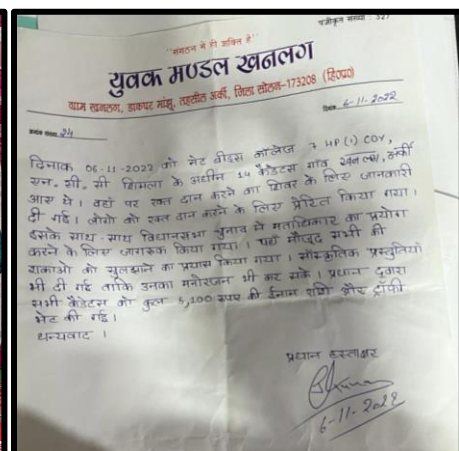 पंजीकृत संख्या : 327
"संगठन में ही शक्ति है"
युवक मण्डल खनलग
ग्राम खनलग, डाकघर मांझू, तहसील अर्की, जिला सोलन-173208 (हि०प्र०)
क्रमांक संख्या 24
दिनांक 6-11-2022
दिनाक 06-11-2022 को सेट बीड्स कॉलेज 7 HP (1) COY,
एन. सी. सी शिमला के अधीन 14 कैडेटस गांव खनलग, अर्की
आए थे। वहाँ पर रक्त दान करने का शिवर के लिए जानकारी
दी गई। लोगों को रक्त दान करने के लिए प्रेरित किया गया।
इसके साथ-साथ विधानसभा चुनाव में मताधिकार का प्रयोग
करने के लिए जागरूक किया गया। यहाँ मौजूद सभी की
शकाओं को सुलझाने का प्रयास किया गया। सांस्कृतिक प्रस्तुतियाँ
भी दी गई ताकि उनका मनोरंजन भी कर सके। प्रधान द्वारा
सभी कैडेटस को कुल 5,100 रुपए की ईनाम राशि और ट्रॉफी
भेट की गई।
धन्यवाद ।
प्रधान हस्ताक्षर
6-11-2022